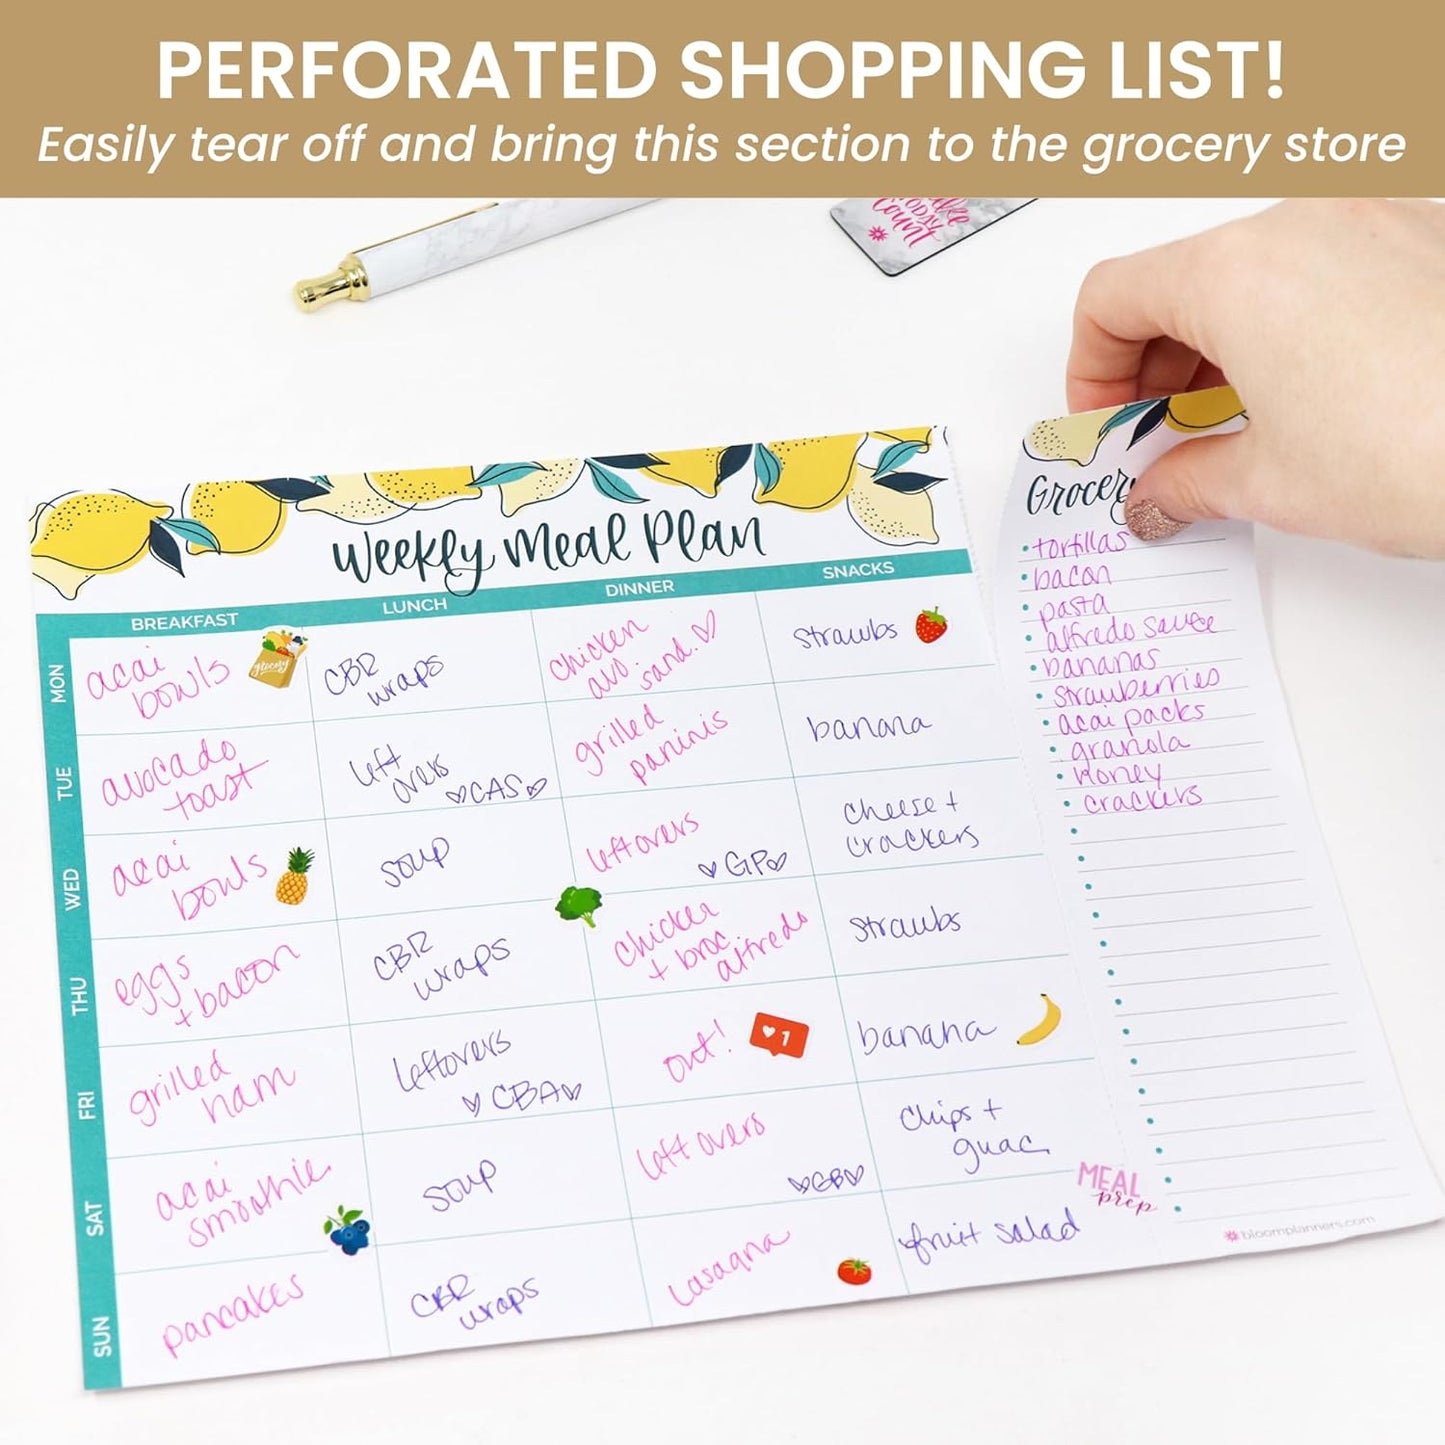 PERFORATED SHOPPING LIST!
Easily tear off and bring this section to the grocery store
TODAY
Count
Weekly Meal Plan
BREAKFAST
LUNCH
DINNER
SNACKS
MON
acai
bowls
grocery
CBR
wraps
chicken
avo
sand.
strawbs
TUE
avocado
toast
left
overs
CAS
grilled
paninis
banana
WED
acai
bowls
soup
leftovers
GP
cheese +
crackers
THU
eggs
+ bacon
CBR
wraps
chicken
+ broc
alfredo
strawbs
FRI
grilled
ham
leftovers
CBA
out!
1
banana
SAT
acai
smoothie
soup
leftovers
GB
chips +
guac
SUN
pancakes
CBR
wraps
lasagna
fruit salad
MEAL
prep
Grocery
tortillas
bacon
pasta
alfredo sauce
bananas
strawberries
acai packs
granola
honey
crackers
bloomplanners.com